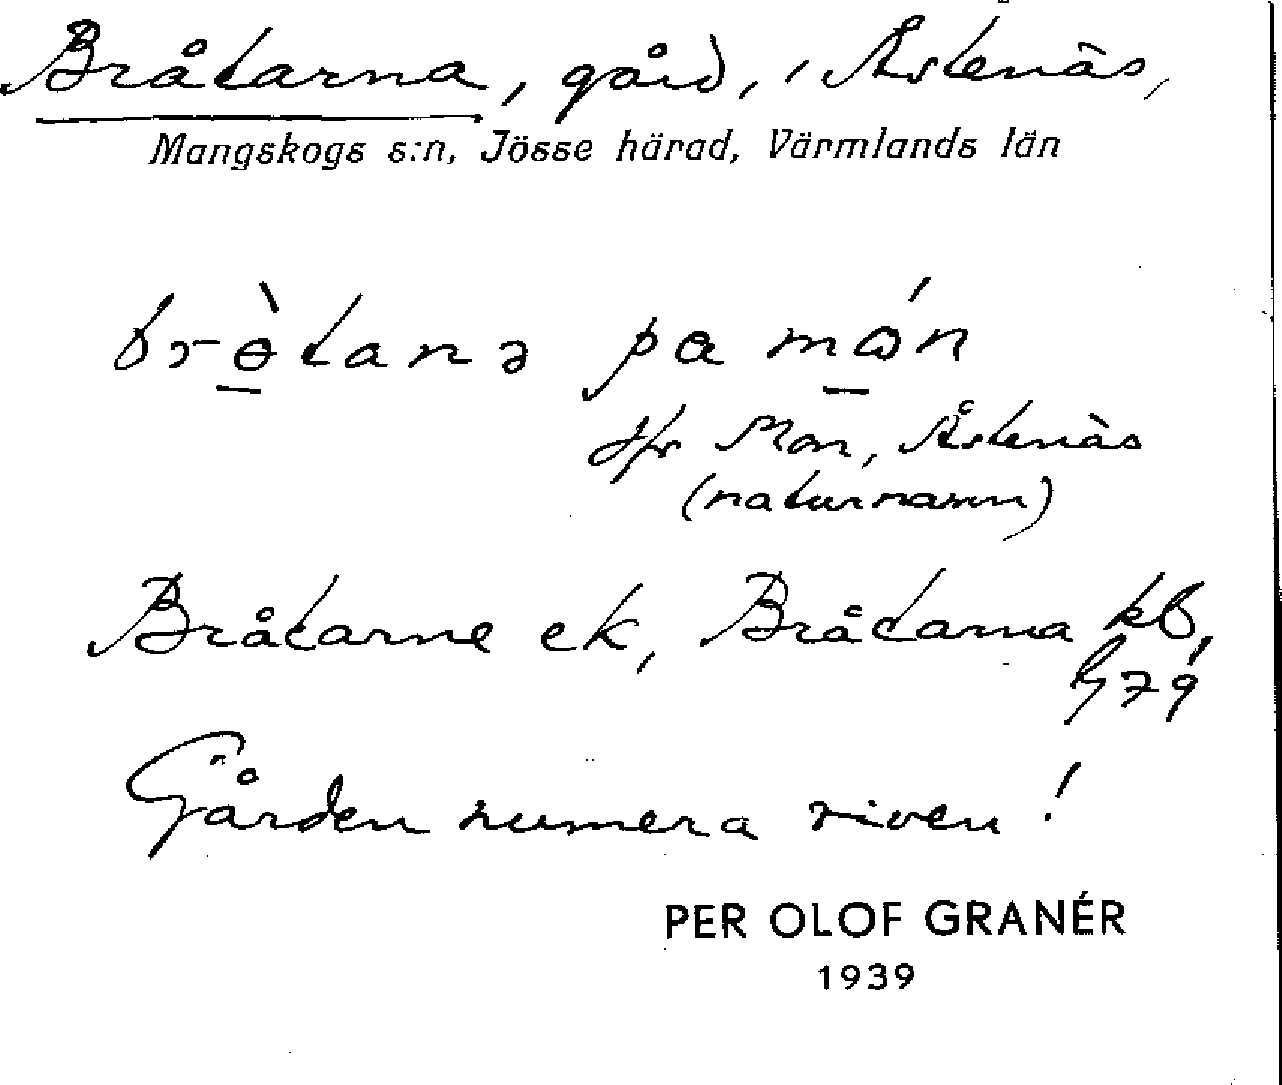 Bråtarna, gård, i Åstenäs,
Mangskogs s:n, Jösse härad, Värmlands län
brɵ̱̀tanə pa mɷ̱́n
Jfr Mon, Åstenäs
(naturnamn)
Bråtarne ek, Bråtarna kb,
G79
Gården numera riven!
PER OLOF GRANÉR
1939